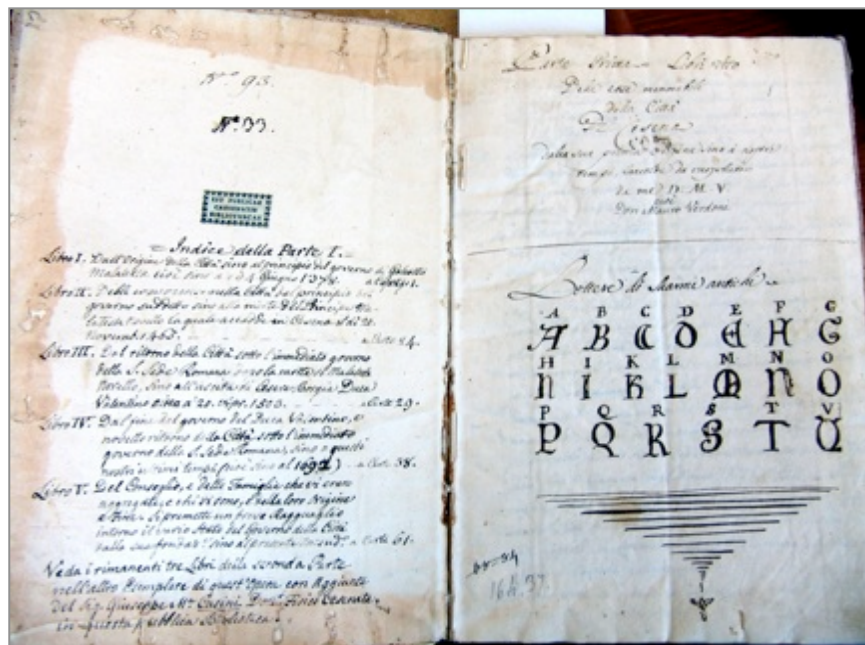 N.º 93.
Nº. 33.
Indice della Parte I.
Libro I. Dall'Origine della Città sino al principio del governo di Galeotto
Malatesta cioè sino a' 4 Giugno 1378.
Libro II. nella Città dal principio del
governo suddetto sino alla morte del Principe
Novello la quale accadde in Cesena di 20
Novembre 1465. a Carte 24.
Libro III. Dal ritorno della Città sotto l'immediato governo
della S. Sede Romana dopo la morte di Malatesta
Novello, sino all'uscita di Cesare Borgia Duca
Valentino a Carte 29.
Libro IV. Dal fine del governo del Duca Valentino, e
novello ritorno della Città sotto l'immediato
governo della S. Sede Romana, sino a questi
nostri ultimi tempi (cioè sino al 1692) a Carte 38.
Libro V. Del Conseglio, e delle Famiglie che vi erano
aggregate, e chi vi sono, e della loro Origine
e Arme. Si premette un breve Ragguaglio
intorno il vario Stato del Governo della Città
dalla sua sino al presente a Carte 61.
Veda i rimanenti tre Libri della seconda Parte
nell'altro Esemplare di quest'Opera con Aggiunte
del Sig. Giuseppe Mª. Cesenate
in questa pubblica Biblioteca.
Parte Prima
Delle cose memorabili
della Città
Di Cesena
dalla sua prima origine sino a nostri
tempi
da me D. M. V.
Don Mauro Verdoni
Lettere di Marmi antichi
A B C D E F G
A B C D E F G
H I K L M N O
H I K L M N O
P Q R S T V
P Q R S T V
164.37